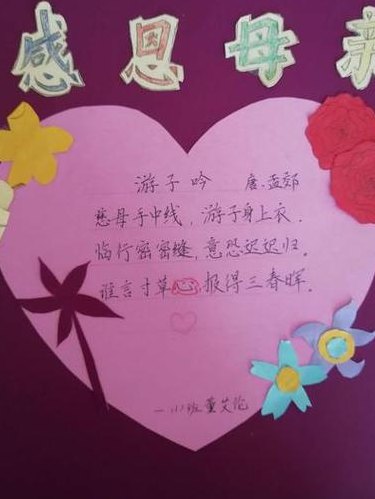 感恩母亲
游子吟 唐.孟郊
慈母手中线，游子身上衣.
临行密密缝，意恐迟迟归。
谁言寸草心，报得三春晖.
班董